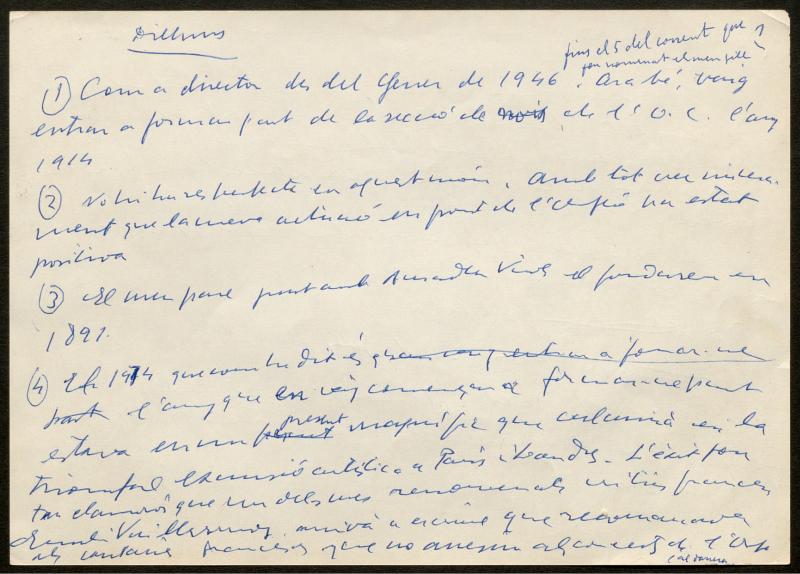 Dilluns
fins el 5 del corrent que
fou nomenat el meu fill
① Com a director des del Gener de 1946. Ara bé, vaig
entrar a formar part de la secció de nois de l'O.C. l'any
1914
② No hi ha res perfecte en aquest món. Amb tot crec
ment que la meva actuació en front de l'Orfeó ha estat
positiva
③ El meu pare junt amb Amadeu Vives el fundaren en
1891.
④ El 1914 que com he dit és quan vaig entrar a formar-ne
part l'any que en vaig començar a formar-ne part
estava en un present present magnífic que culminà en la
triomfal excursió artística a París i Londres. L'èxit fou
tan clamorós que un dels més renomenats crítics francesos
Emile Vuillermoz, arribà a escriure que recomanava
als cantaires francesos que no anessin al concert de l'Orfeó
Català